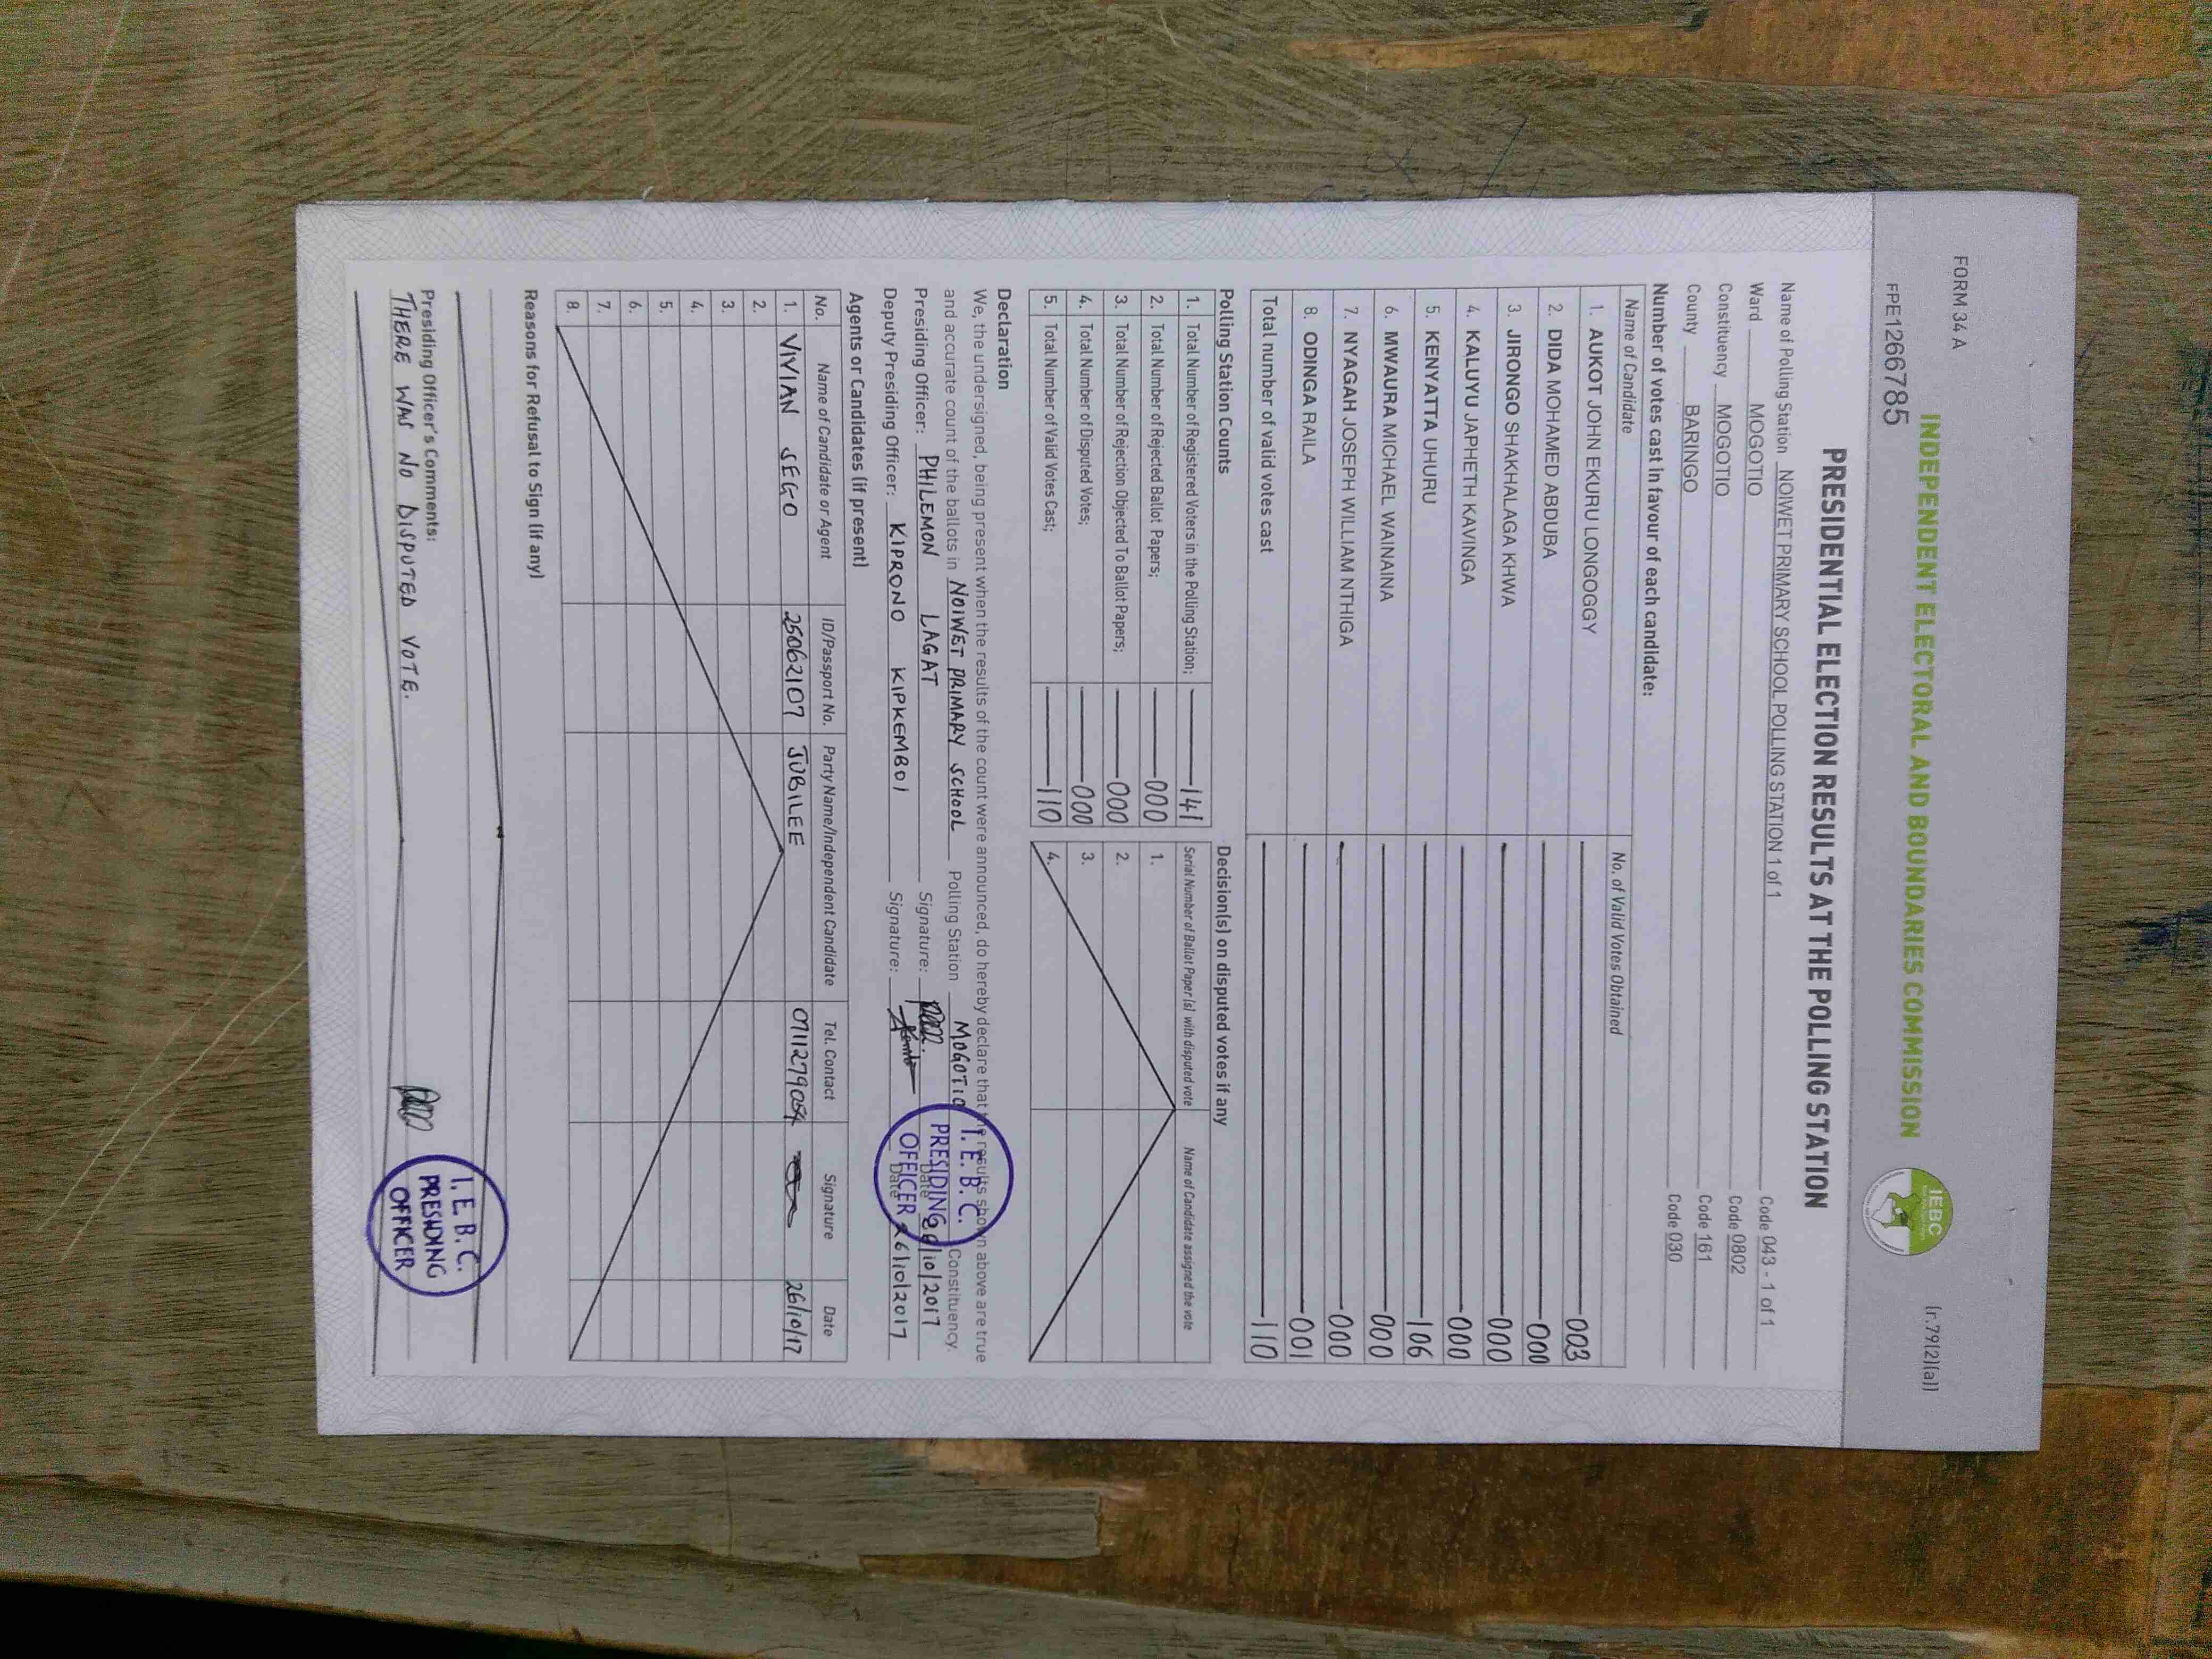 FORM 34 A
[r.79(2)(a)]
INDEPENDENT ELECTORAL AND BOUNDARIES COMMISSION
IEBC
FPE1266785
PRESIDENTIAL ELECTION RESULTS AT THE POLLING STATION
Name of Polling Station NOIWET PRIMARY SCHOOL POLLING STATION 1 of 1 Code 043 - 1 of 1
Ward MOGOTIO Code 0802
Constituency MOGOTIO Code 161
County BARINGO Code 030
Number of votes cast in favour of each candidate:
Name of Candidate No. of Valid Votes Obtained
1. AUKOT JOHN EKURU LONGOGGY 003
2. DIDA MOHAMED ABDUBA 000
3 JIRONGO SHAKHALAGA KHWA 000
4. KALUYU JAPHETH KAVINGA 000
5. KENYATTA UHURU 106
6. MWAURA MICHAEL WAINAINA 000
7. NYAGAH JOSEPH WILLIAM NTHIGA 000
8. ODINGA RAILA 001
Total number of valid votes cast 110
Polling Station Counts Decision(s) on disputed votes if any
1. Total Number of Registered Voters in the Polling Station; 141 Serial Number of Ballot Paper (s) with disputed vote Name of Candidate assigned the vote
2. Total Number of Rejected Ballot Papers; 000 1.
3. Total Number of Rejection Objected To Ballot Papers; 000 2.
4. Total Number of Disputed Votes; 000 3.
5. Total Number of Valid Votes Cast; 110 4.
Declaration
We, the undersigned, being present when the results of the count were announced, do hereby declare that the results shown above are true
and accurate count of the ballots in NOIWET PRIMARY SCHOOL Polling Station MOGOTIO Constituency.
Presiding Officer: PHILEMON LAGAT Signature: Date 26/10/2017
Deputy Presiding Officer: KIPRONO KIPKEMBOI Signature: Date 26/10/2017
I.E.B.C.
PRESIDING
OFFICER
Agents or Candidates (if present)
No. Name of Candidate or Agent ID/Passport No. Party Name/Independent Candidate Tel. Contact Signature Date
1. VIVIAN SEGO 25062107 JUBILEE 26/10/17
2.
3.
4.
5.
6.
7.
8.
Reasons for Refusal to Sign (if any)
Presiding Officer's Comments:
THERE WAS NO DISPUTED VOTE.
I.E.B.C.
PRESIDING
OFFICER